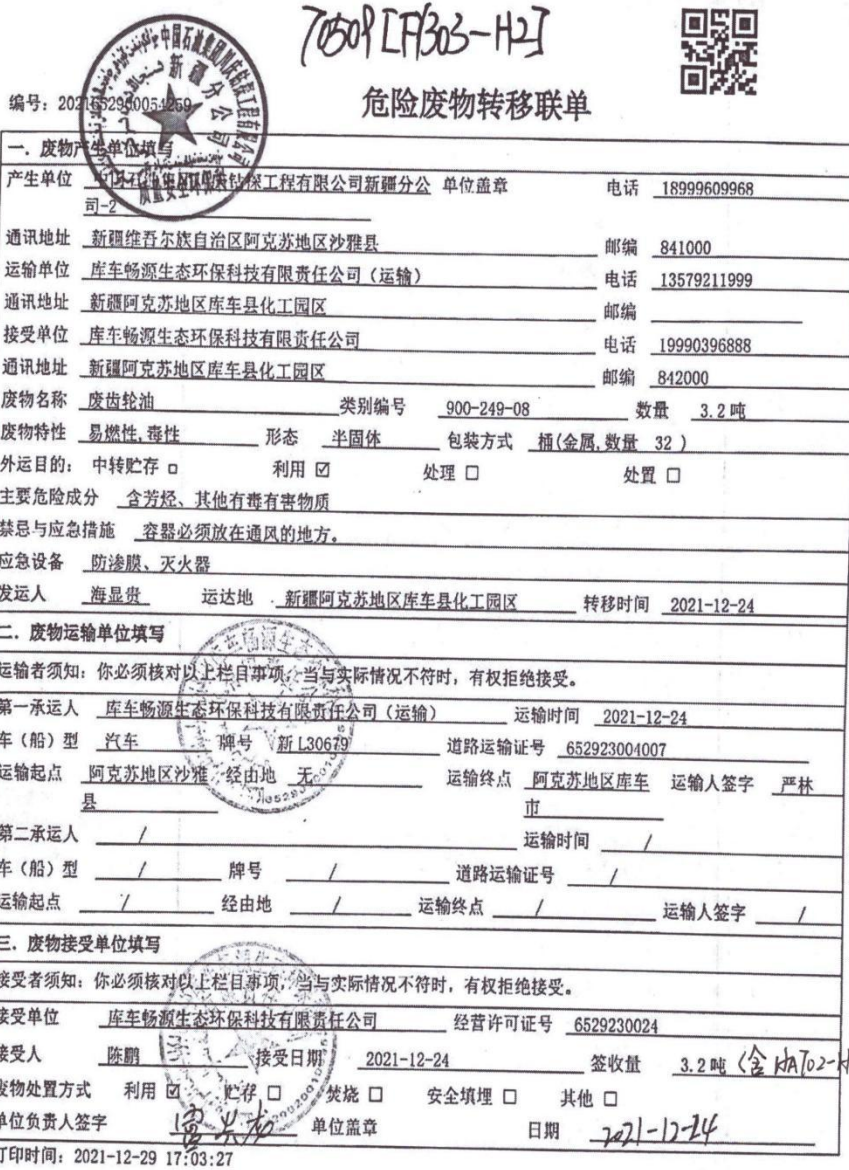 70509[F1303-H2]
编号：2021652900054259
危险废物转移联单
一．废物产生单位填写
产生单位 钻探工程有限公司新疆分公 单位盖章 电话 18999609968
司-2
通讯地址 新疆维吾尔族自治区阿克苏地区沙雅县 邮编 841000
运输单位 库车畅源生态环保科技有限责任公司（运输） 电话 13579211999
通讯地址 新疆阿克苏地区库车县化工园区 邮编
接受单位 库车畅源生态环保科技有限责任公司 电话 19990396888
通讯地址 新疆阿克苏地区库车县化工园区 邮编 842000
废物名称 废齿轮油 类别编号 900-249-08 数量 3.2吨
废物特性 易燃性,毒性 形态 半固体 包装方式 桶(金属,数量 32 )
外运目的： 中转贮存 □ 利用 ☑ 处理 □ 处置 □
主要危险成分 含芳烃、其他有毒有害物质
禁忌与应急措施 容器必须放在通风的地方。
应急设备 防渗膜、灭火器
发运人 海显贵 运达地 新疆阿克苏地区库车县化工园区 转移时间 2021-12-24
二．废物运输单位填写
运输者须知：你必须核对以上栏目事项，当与实际情况不符时，有权拒绝接受。
第一承运人 库车畅源生态环保科技有限责任公司（运输） 运输时间 2021-12-24
车（船）型 汽车 牌号 新L30679 道路运输证号 652923004007
运输起点 阿克苏地区沙雅 经由地 无 运输终点 阿克苏地区库车 运输人签字 严林
县 市
第二承运人 / 运输时间 /
车（船）型 / 牌号 / 道路运输证号 /
运输起点 / 经由地 / 运输终点 / 运输人签字 /
三．废物接受单位填写
接受者须知：你必须核对以上栏目事项，当与实际情况不符时，有权拒绝接受。
接受单位 库车畅源生态环保科技有限责任公司 经营许可证号 6529230024
接受人 陈鹏 接受日期 2021-12-24 签收量 3.2吨（含HA702-H
废物处置方式 利用 ☑ 贮存 □ 焚烧 □ 安全填埋 □ 其他 □
单位负责人签字 单位盖章 日期 2021-12-24
打印时间：2021-12-29 17:03:27